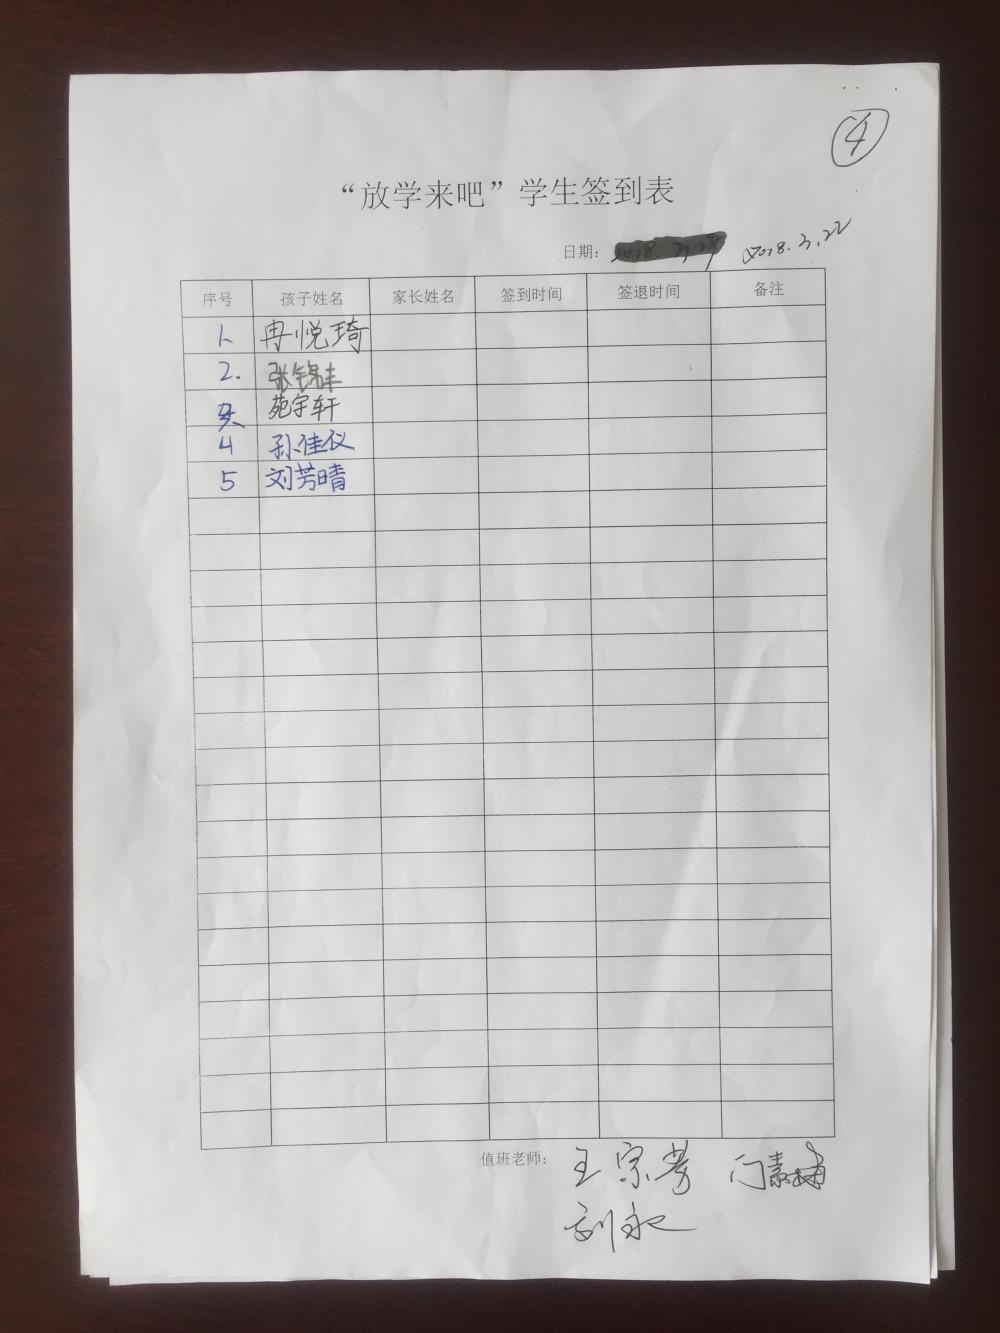 ④
“放学来吧”学生签到表
日期： 2018.3.22
序号 孩子姓名 家长姓名 签到时间 签退时间 备注
1. 冉悦琦
2. 张锦丰
苑宇轩
4 孙佳仪
5 刘芳晴
值班老师： 王宗芳 闫素
刘